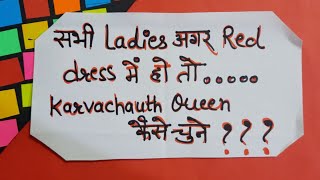 सभी Ladies अगर Red
dress में हो तो.....
Karvachauth Queen
कैसे चुने ???